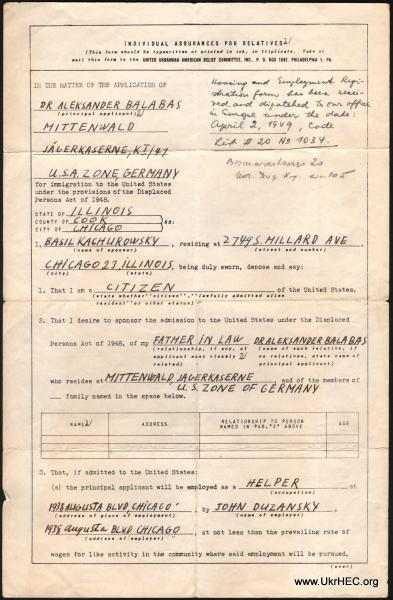 INDIVIDUAL ASSURANCES FOR RELATIVES 1/
(This form should be typewritten or printed in ink, in triplicate. Take or
mail this form to the UNITED UKRAINIAN AMERICAN RELIEF COMMITTEE, INC., P. O. BOX 1661, PHILADELPHIA 5, PA.
IN THE MATTER OF THE APPLICATION OF
DR ALEKSANDER BALABAS
(principal applicant) 2/
MITTENWALD
JÄGERKASERNE, K I/47
U.S.A. ZONE, GERMANY
for immigration to the United States
under the provisions of the Displaced
Persons Act of 1948.
Housing and Employment Regi-
stration form has been recei-
ved and dispatched to our office
in Europe under the date:
April 2, 1949, Code
List # 20 No 1034.
STATE OF ILLINOIS
COUNTY OF COOK SS:
CITY OF CHICAGO
I, BASIL KACHUROWSKY, residing at 2749 S. MILLARD AVE
(name of sponsor) (street and number)
CHICAGO 23, ILLINOIS, being duly sworn, depose and say:
(city) (state)
1. That I am a CITIZEN of the United States.
(state whether "citizen", "lawfully admitted alien
resident" or other status)
2. That I desire to sponsor the admission to the United States under the Displaced
Persons Act of 1948, of my FATHER IN LAW DR ALEKSANDER BALABAS
(relationship, if any, of (name of such relative, if
applicant must closely 2/ no relatives, state name of
related) principal applicant)
who resides at MITTENWALD JAGERKASERNE and of the members of
U.S. ZONE OF GERMANY
family named in the space below.
NAME 2/ ADDRESS RELATIONSHIP TO PERSON AGE
NAMED IN PAR. "2" ABOVE
3. That, if admitted to the United States:
(a) the principal applicant will be employed as a HELPER at
(occupation)
1938 AUGUSTA BLVD, CHICAGO, by JOHN DUZANSKY
(address of place of employment) (name of employer)
1938 Augusta BLVD CHICAGO, at not less than the prevailing rate of
(address of employer)
wages for like activity in the community where said employment will be pursued,
(over)
www.UkrHEC.org